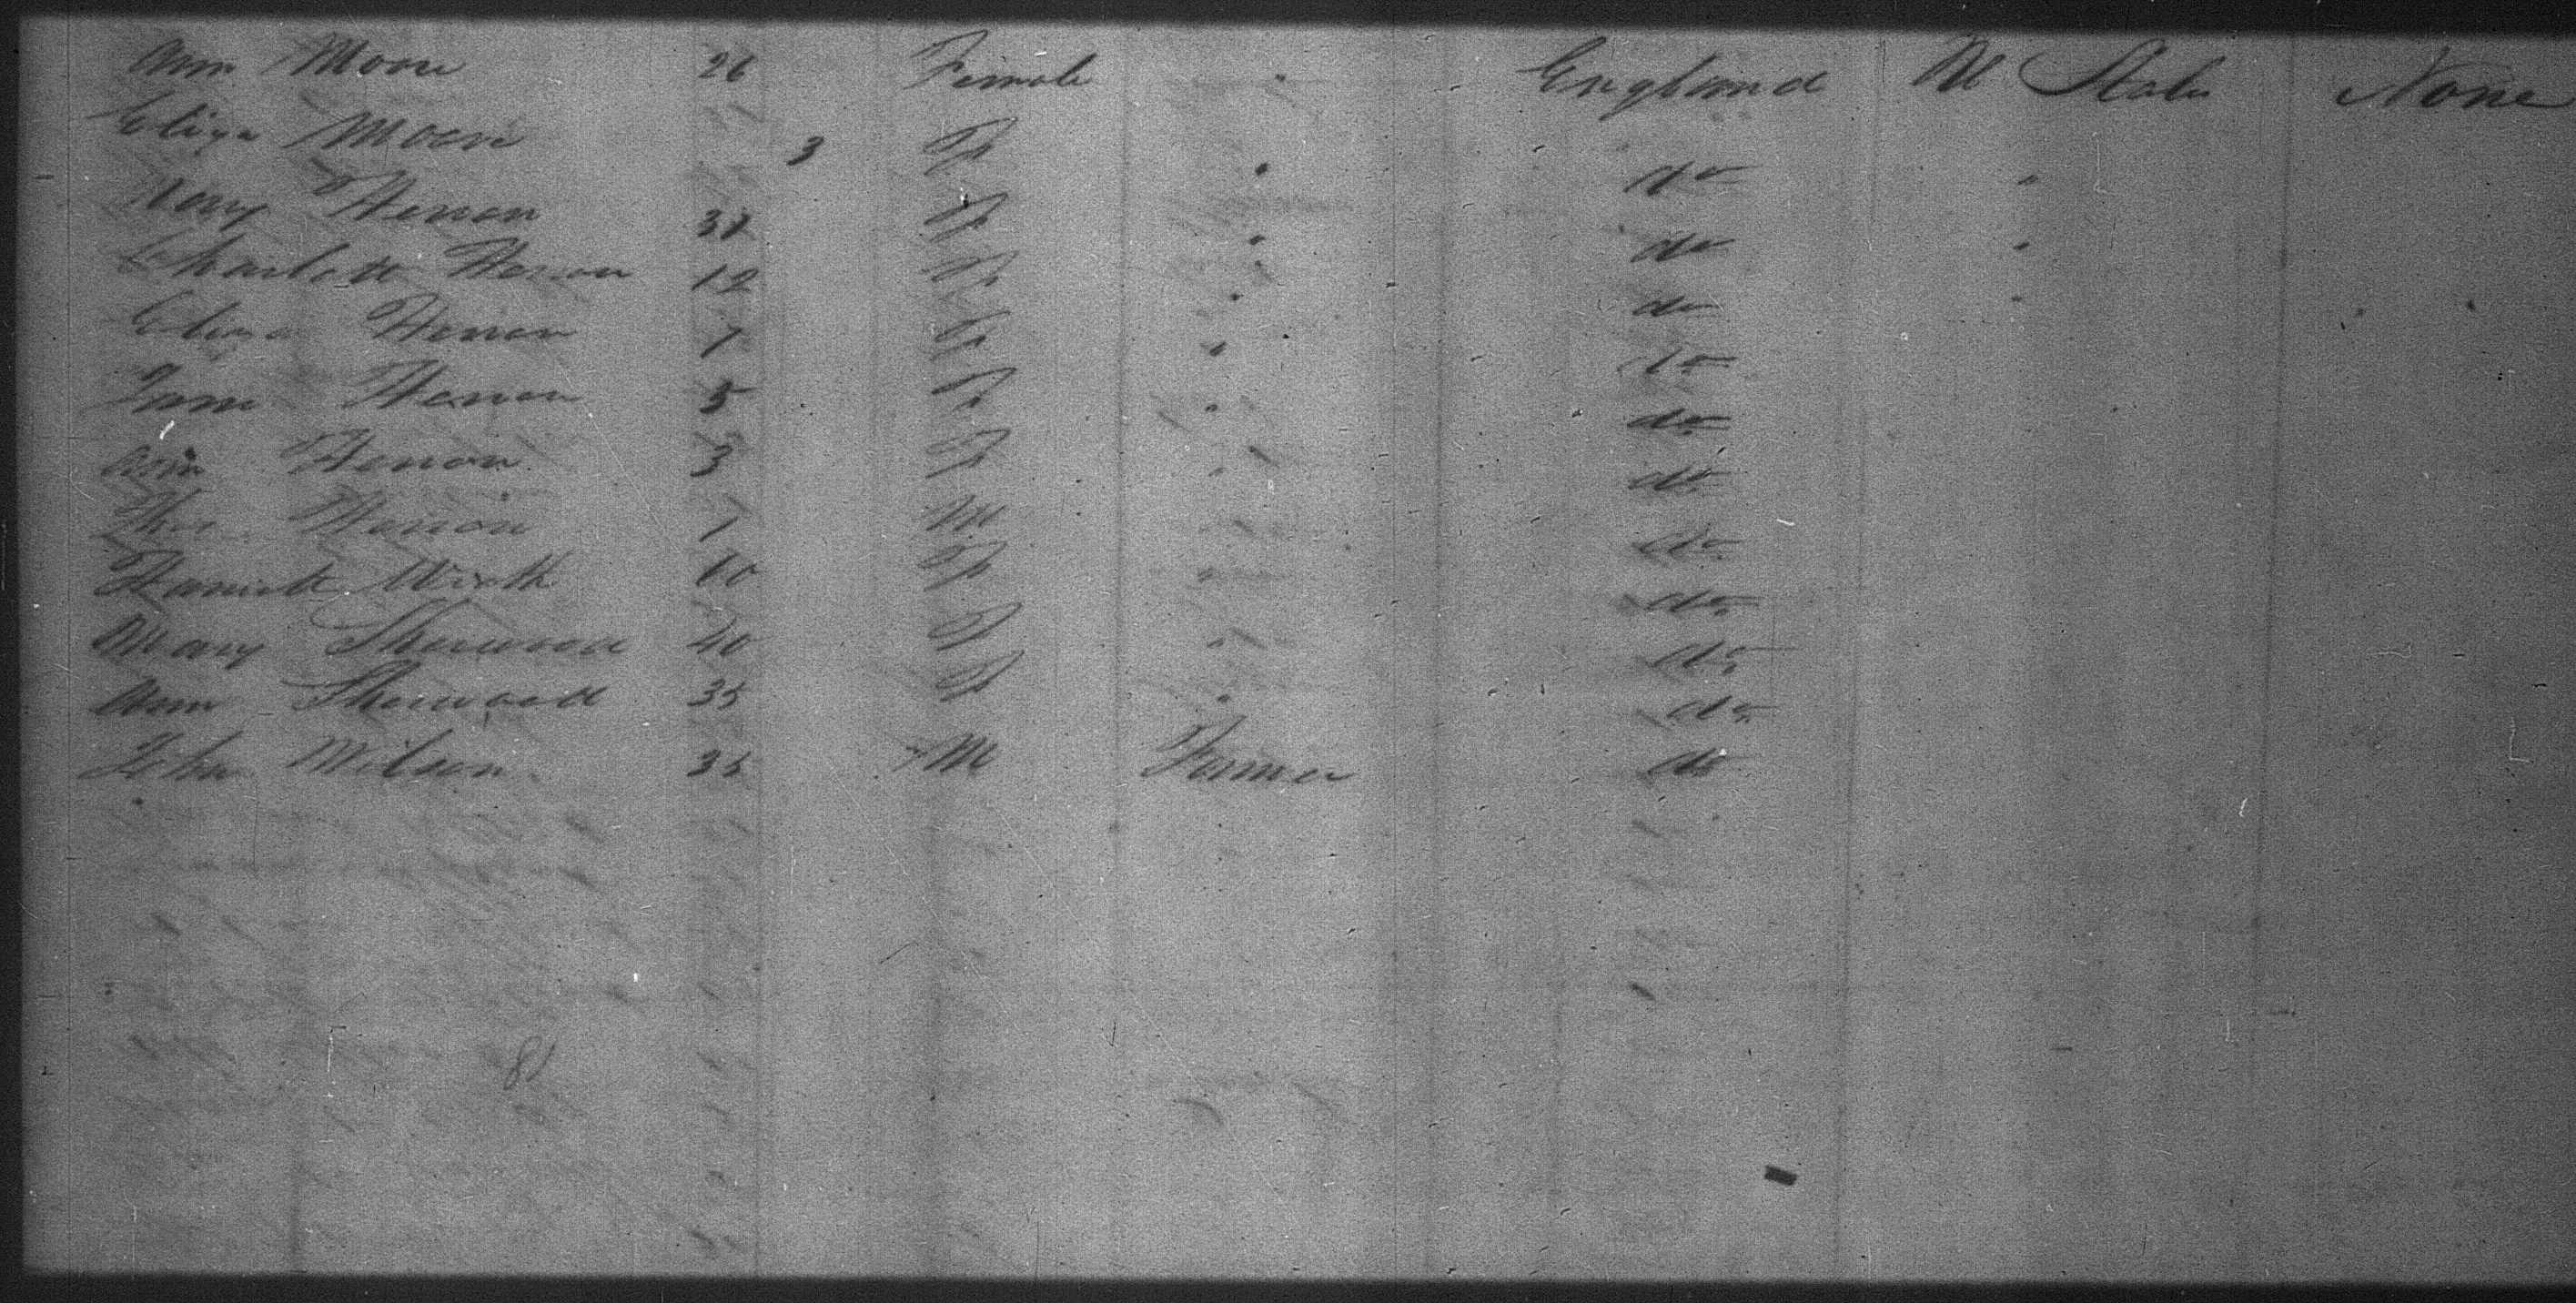 Ann Moore 26 Female " England U States None
Eliza Moore 3 F " do "
Mary Henson F " do "
Charlott Henson 12 F " do "
Eliza Henson 7 F " do
Jane Henson 5 F " do
Ann Henson 3 F " do
Thos Henson 1 M do
Harriett 60 F " do
Mary Sherwood 40 F " do
Ann Sherwood 35 F " do
John Wilson 35 M Farmer do
81